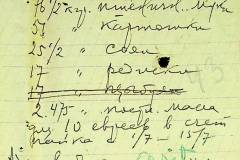 16 1/2 кгр. пшеничн. муки
55 " картошки
25 1/2 " сои
17 " редиски
17
2.475 " постн. масла
для 10 евреев в счет
пайка с 1/7 – 15/7
43